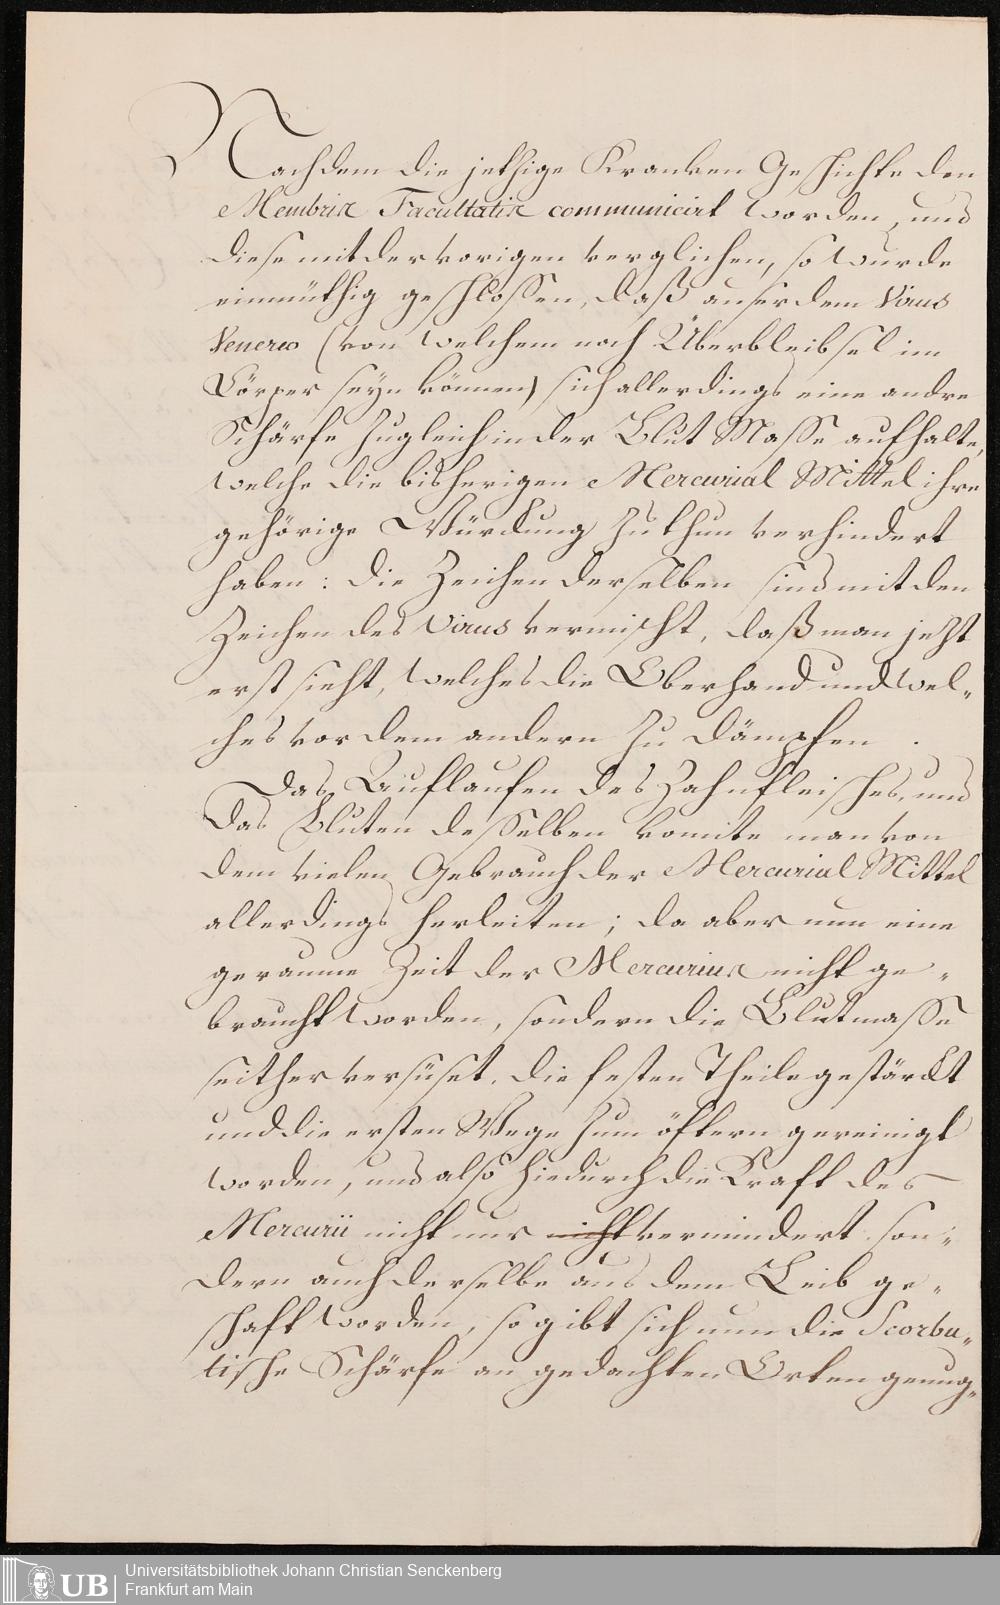 Nachdem die jetzige Kranken Geschichte den
Membris Facultatis communicirt worden, und
diese mit der vorigen verglichen, so wurde
einmüthig geschlossen, daß auser dem Virus
Venereo (von welchem noch Überbleibsel im
Cörper seyn können) sich allerdings eine andre
Schärfe zugleich in der Blut Masse aufhalte,
welche die bisherigen Mercurial Mittel ihre
gehörige Würckung zu thun verhindert
haben: die Zeichen derselben sind mit den
Zeichen des Virus vermischt, daß man jetzt
erst sieht, welches die Oberhand und wel-
ches vor dem andern zu dämpfen.
Das Auflaufen des Zahnfleisches, und
das Bluten desselben konnte man von
dem vielen Gebrauch der Mercurial Mittel
allerdings herleiten; da aber nun eine
geraume Zeit der Mercurius nicht ge-
braucht worden, sondern die Blutmasse
seither versüset, die festen Theile gestärckt
und die ersten Wege zum öftern gereinigt
worden, und also hiedurch die Kraft des
Mercurii nicht nur nicht vermindert son-
dern auch derselbe aus dem Leib ge-
schaft worden, so gibt sich nun die Scorbu-
tische Schärfe an gedachten Orten genug-
UB
Universitätsbibliothek Johann Christian Senckenberg
Frankfurt am Main